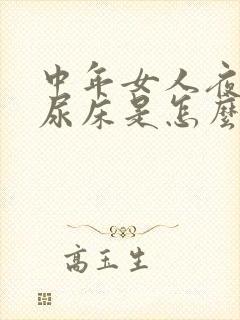 中年女人夜
尿床是怎麼
高玉生